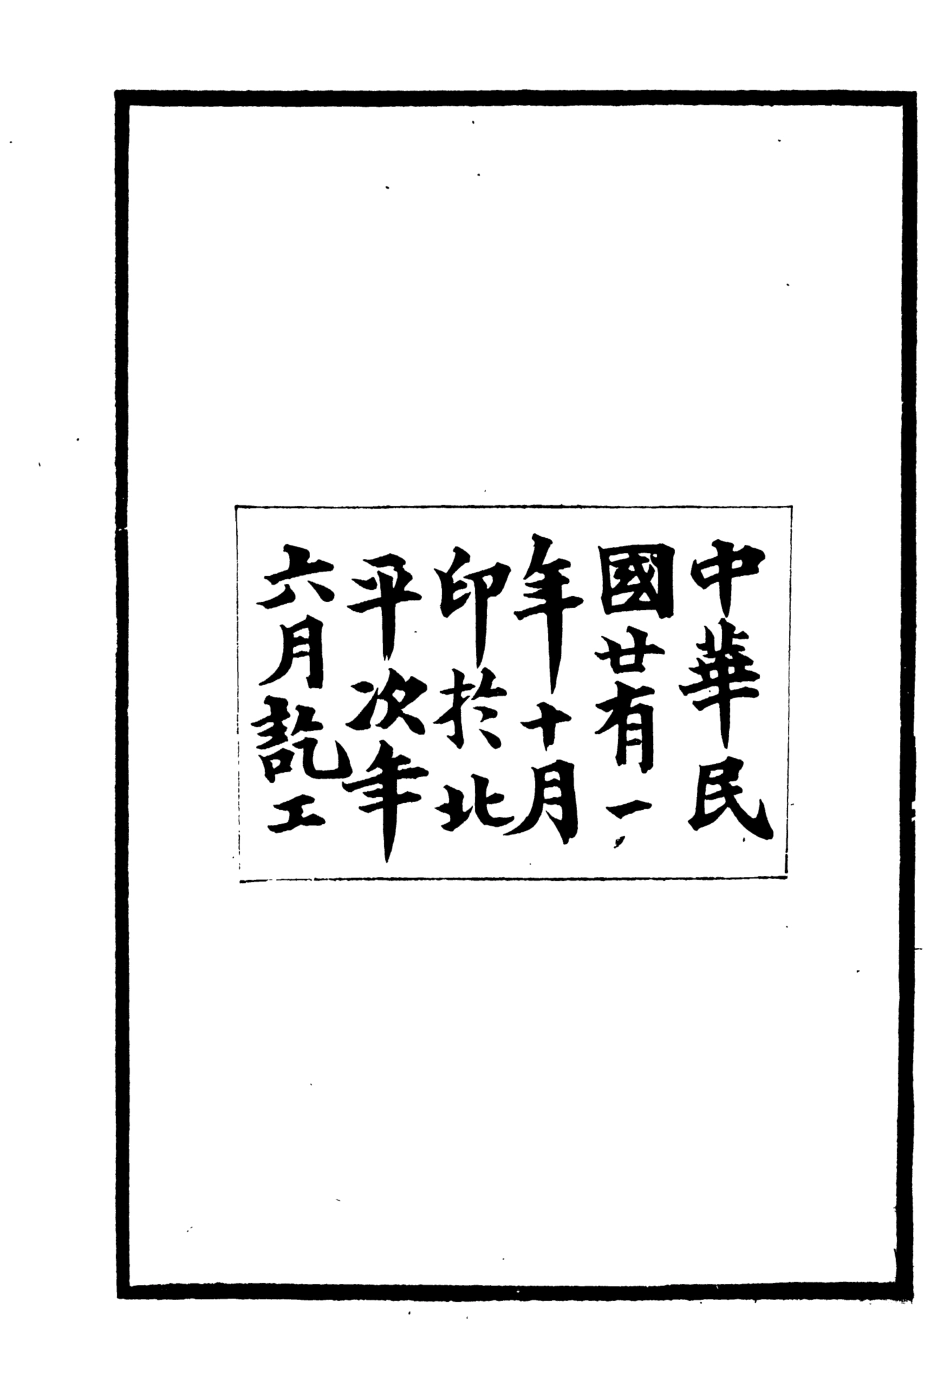 中華民
國廿有一
年十月
印於北
平次年
六月訖工